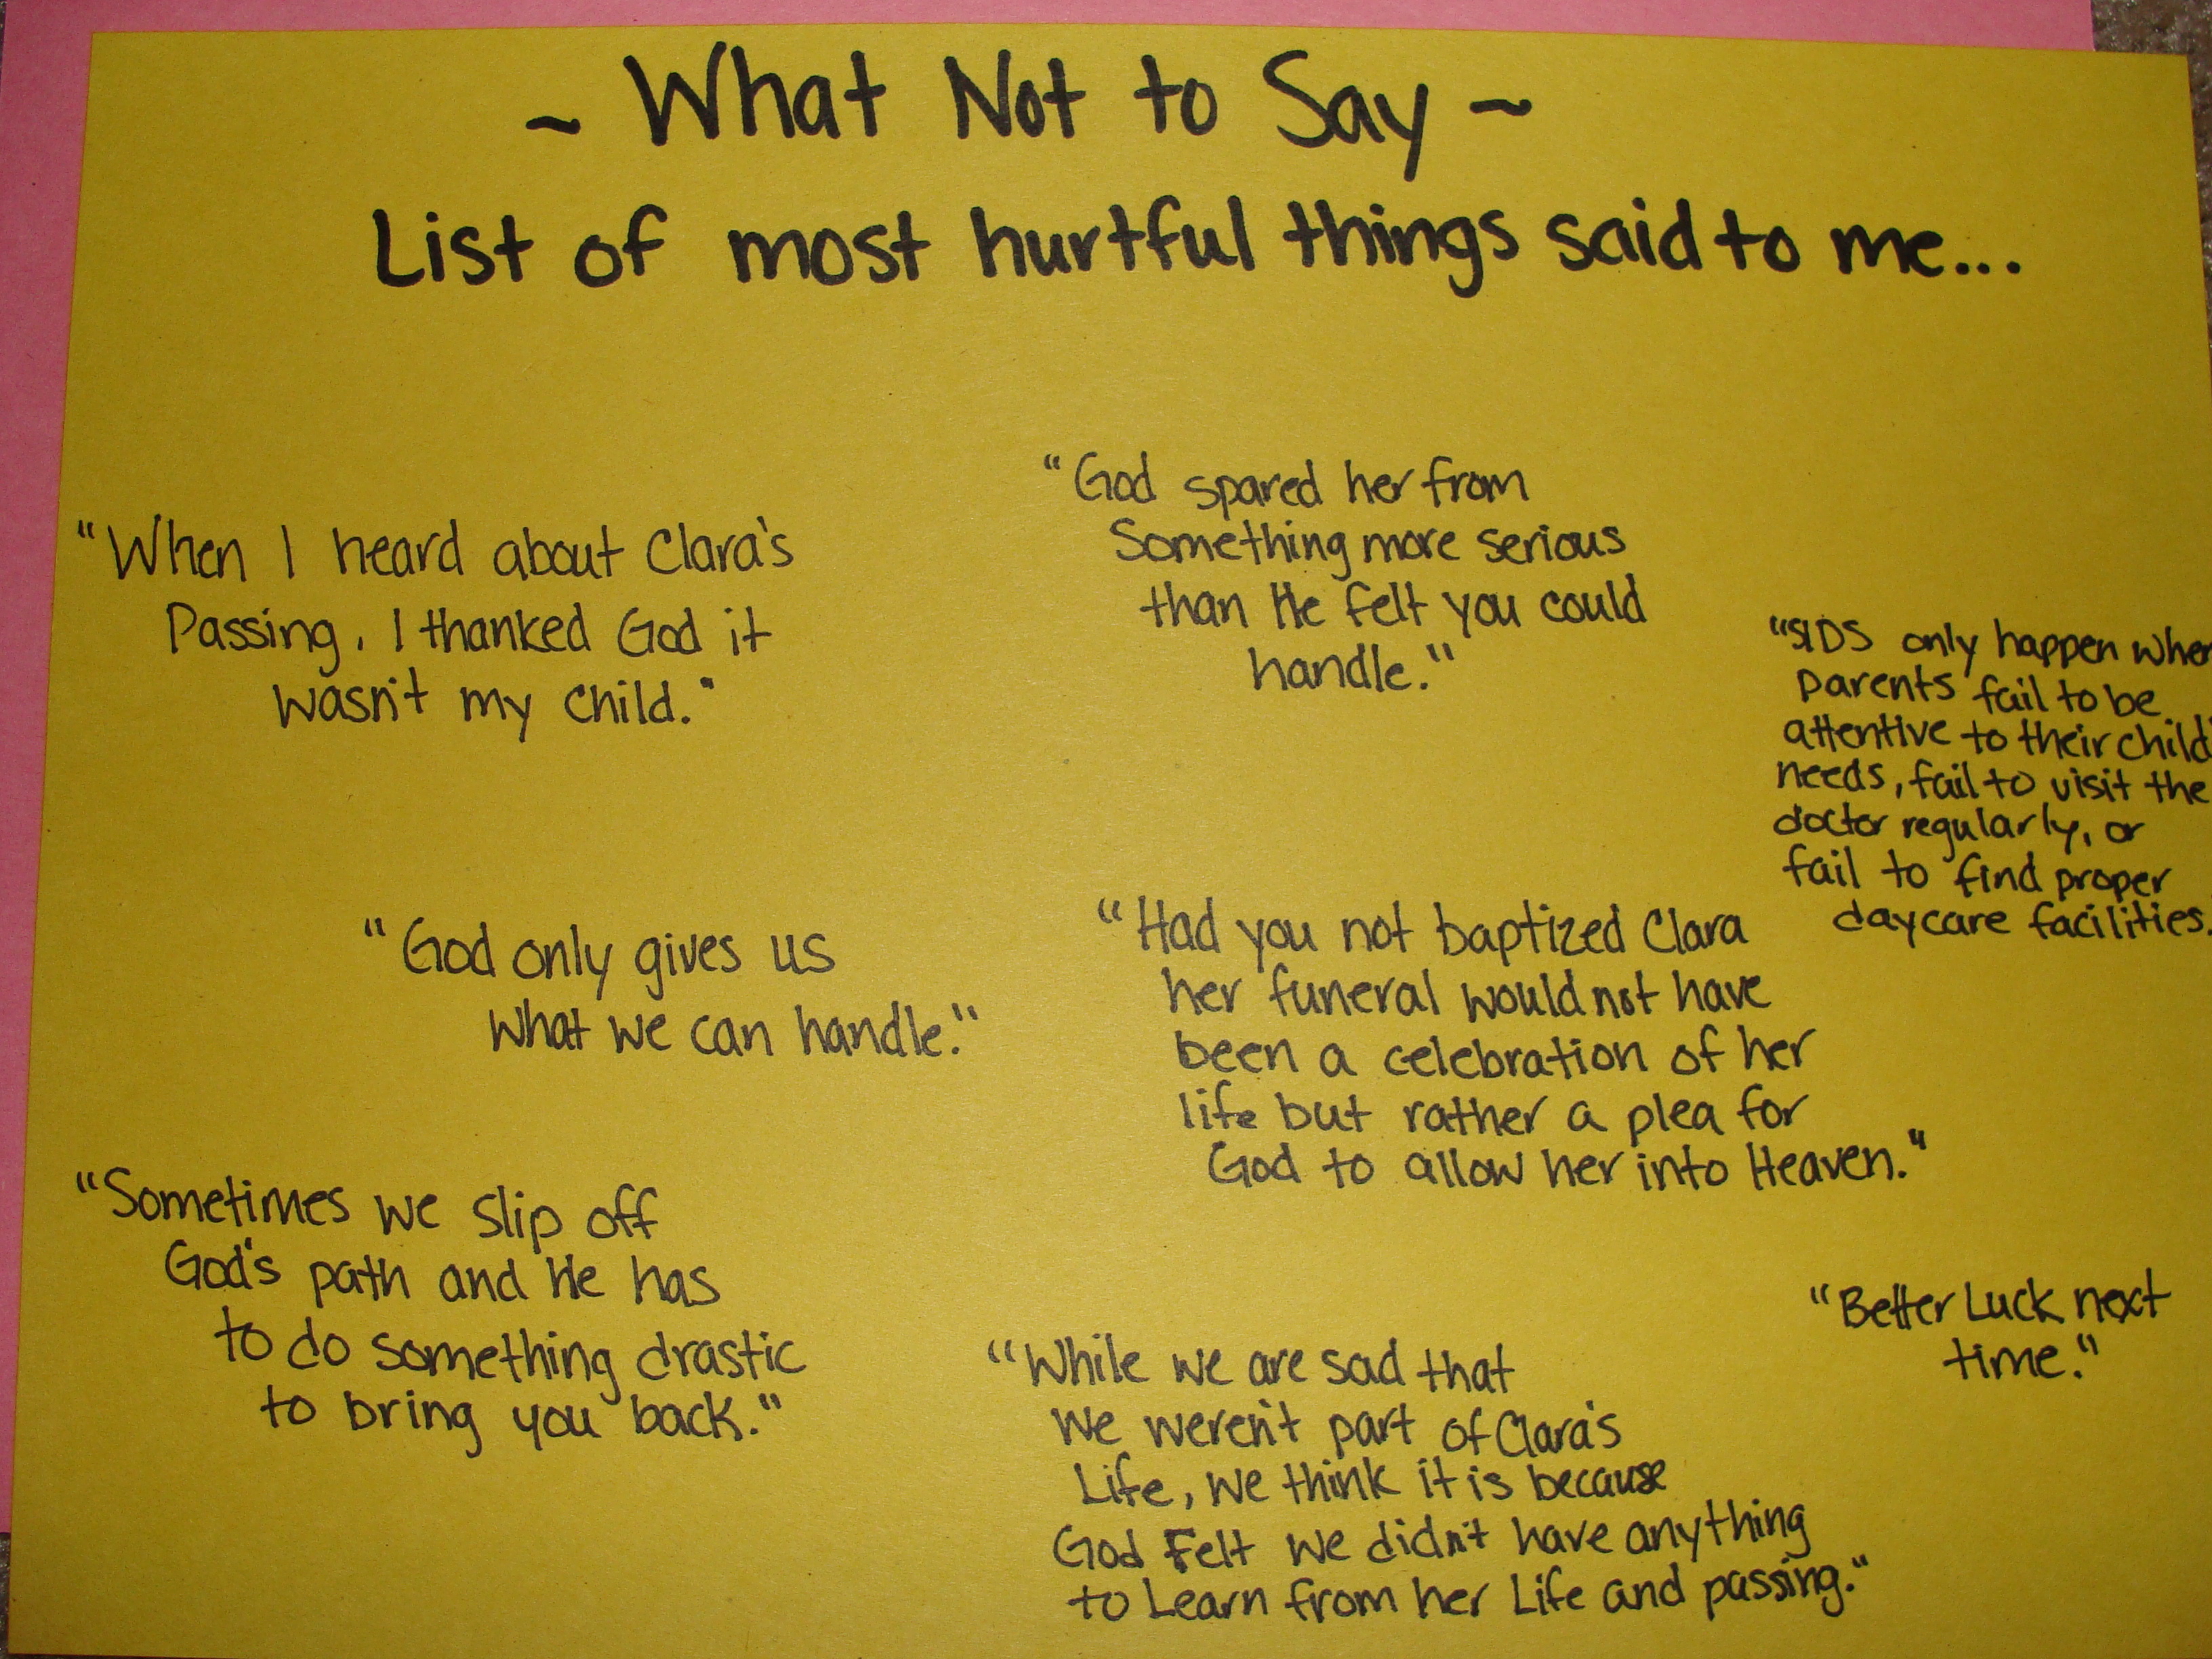 ~ What Not to Say ~
List of most hurtful things said to me...
"When I heard about Clara's
Passing, I thanked God it
wasn't my child."
"God spared her from
Something more serious
than He felt you could
handle."
"SIDS only happen when
parents fail to be
attentive to their child
needs, fail to visit the
doctor regularly, or
fail to find proper
daycare facilities.
"God only gives us
what we can handle."
"Had you not baptized Clara
her funeral would not have
been a celebration of her
life but rather a plea for
God to allow her into Heaven."
"Sometimes we slip off
God's path and He has
to do something drastic
to bring you back."
"While we are sad that
we weren't part of Clara's
Life, we think it is because
God Felt we didn't have anything
to Learn from her Life and passing."
"Better Luck next
time."